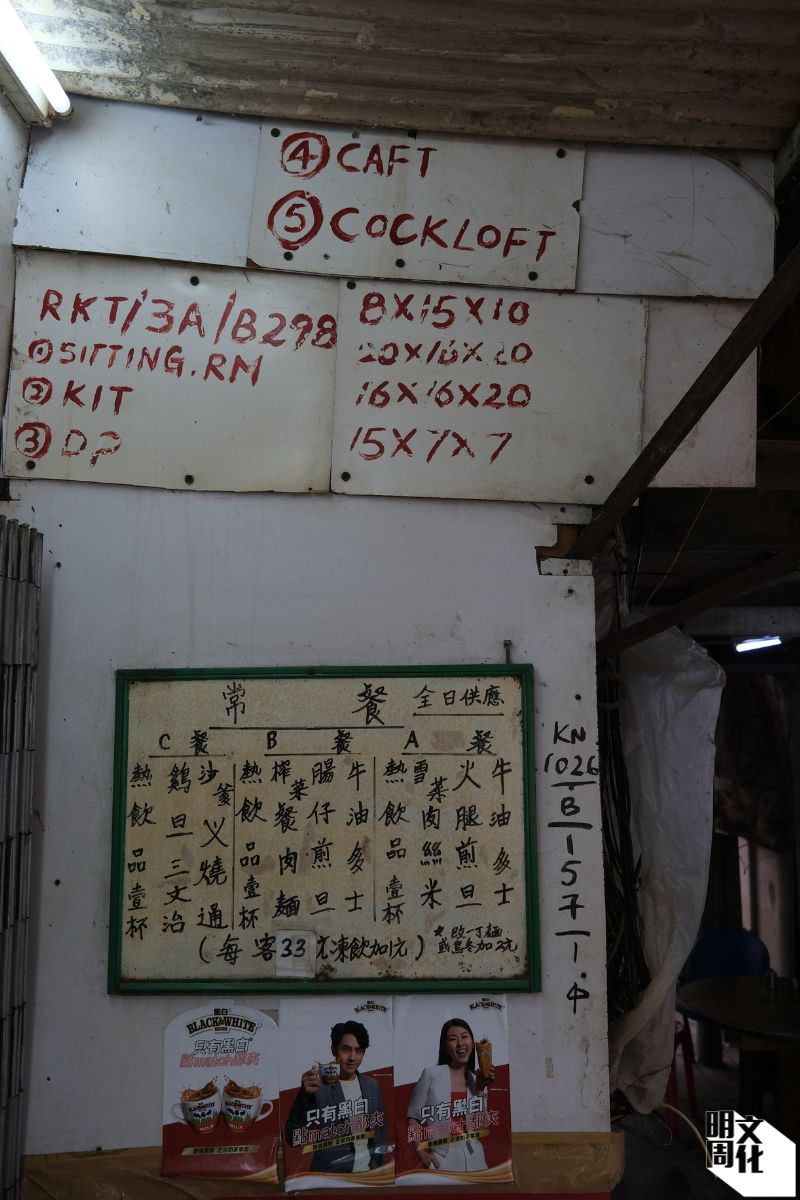 ④ CAFT
⑤ COCKLOFT
RKT/3A/B298
① SITTING.RM
② KIT
③ DP
8X15X10
20X16X20
16X16X20
15X7X7
常餐 全日供應
A 餐
牛油多士
火腿煎旦
雪菜肉絲米
熱飲品壹杯
B 餐
牛油多士
腸仔煎旦
榨菜餐肉麵
熱飲品壹杯
C 餐
沙爹叉燒通
鷄旦三文治
熱飲品壹杯
(每客33元凍飲加1元)
改一丁麵
或烏冬加2元
KN
1026
B
157
1
BLACK&WHITE
只有黑白
點match都夾
BLACK&WHITE
只有黑白
點match都夾
BLACK&WHITE
只有黑白
點match都夾
明周文化